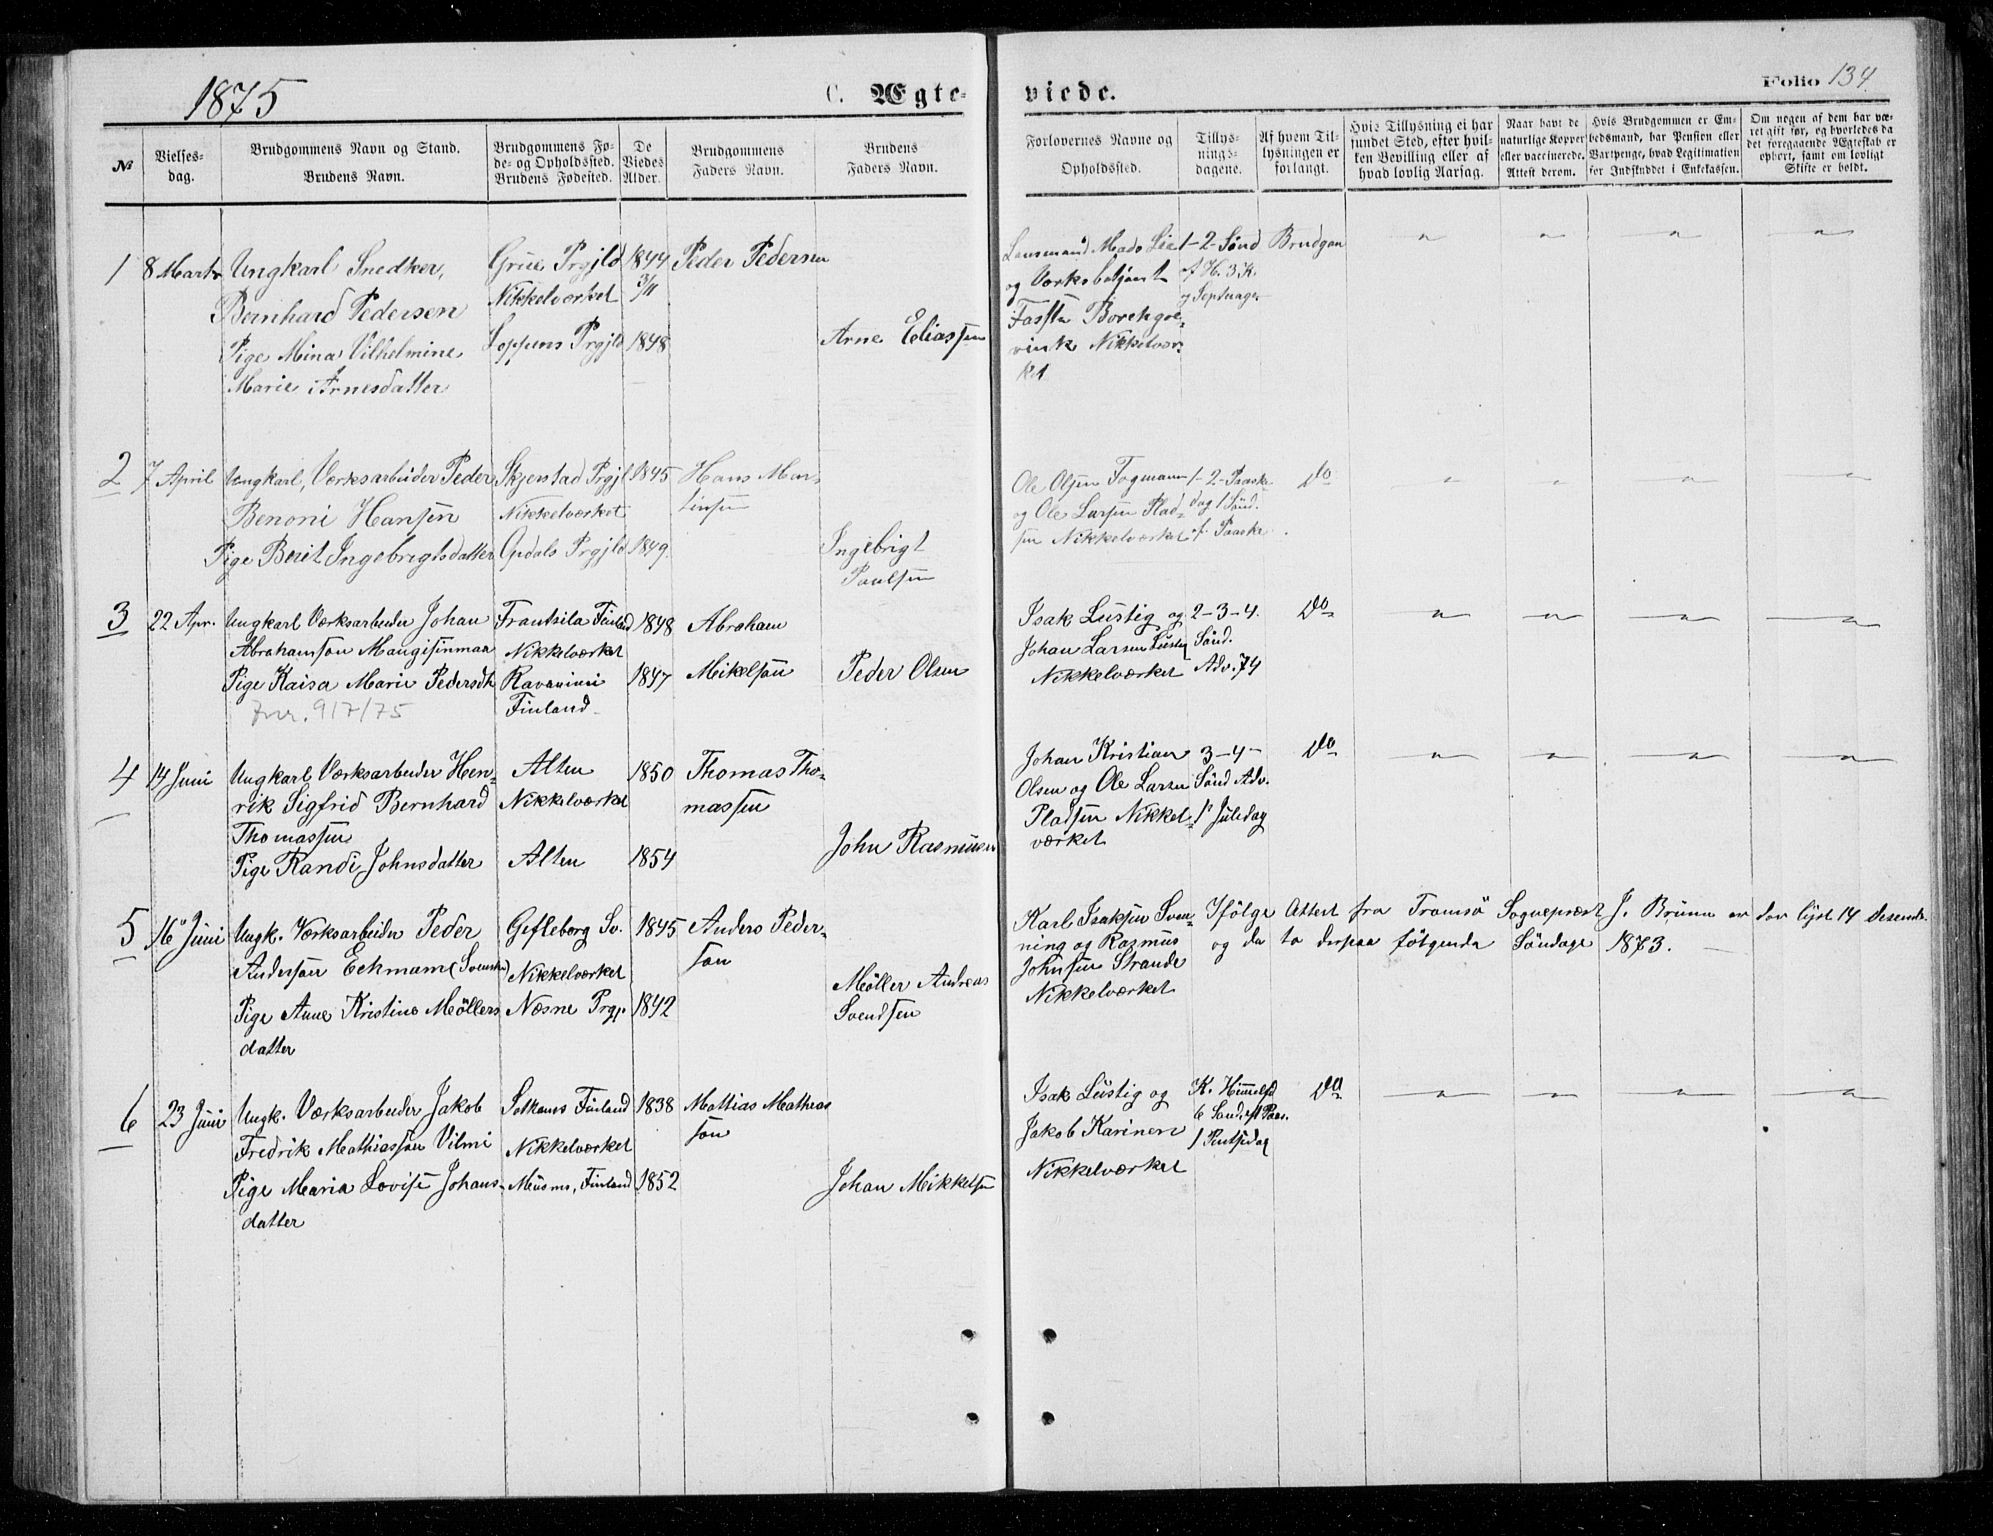 1875
C. Ægte-
viede.
Folio 134.
№
Vielses-
dag.
Brudgommens Navn og Stand.
Brudens Navn.
Brudgommens Fø-
de- og Opholdssted.
Brudens Fødested.
De
Viedes
Alder.
Brudgommens
Faders Navn.
Brudens
Faders Navn.
Forlovernes Navne og
Opholdssted.
Tillys-
nings-
dagene.
Af hvem Til-
lysningen er
forlangt.
Hvis Tillysning ei har
fundet Sted, efter hvil-
ken Bevilling eller af
hvad lovlig Aarsag.
Naar havt de
naturlige Kopper
eller vaccinerede.
Attest derom.
Hvis Brudgommen er Em-
bedsmand, har Pension eller
Vartpenge, hvad Legitimation
for Indskuddet i Enkekassen.
Om nogen af dem har væ-
ret gift før, og hvorledes da
det foregaaende Ægteskab er
ophørt, samt om lovligt
Skifte er holdt.
1
8 Marts
Ungkarl Snedker,
Bernhard Pedersen
Pige Mina Vilhelmine
Marie Arnesdatter
Grue Prgjld
Nikkelværket
Loppens Prgjld
1844
3/11
1848
Peder Pedersen
Arne Eliassen
Lensmand Mads Lie
og Værksbetjent
Nikkelvær-
ket
1-2- Sønd
f H. 3 K.
og Septuages
Brudgom
2
7 April
Ungkarl, Værksarbeider Peder
Benoni Hansen
Pige Berit Ingebrigtsdatter
Skjerstad Prgjl
Nikkelværket
Opdals Prgjld
1845
1849
Hans Mar-
tinsen
Ingebrigt
Paulsen
Ole Olsen Fogmann
og Ole Larsen Plad-
sen Nikkelværket
1-2- Paaske-
dag 1 Sønd.
f. Paaske
Do
3
22 Apr.
Ungkarl Værksarbeider Johan
Abrahamson Mangisenmaa
Pige Kaisa Marie Pedersdtr
Jnr. 917/75
Frantsila Finland
Nikkelværket
Ravaniemi
Finland
1848
1847
Abraham
Mikelson
Peder Olsen
Isak Lustig og
Johan Larsen Lustig
Nikkelværket
2-3-4.
Sønd.
Adv. 74
Do
4
14 Juni
Ungkarl Værksarbeider Hen-
rik Sigfrid Bernhard
Thomassen
Pige Randi Johnsdatter
Alten
Nikkelværket
Alten
1850
1854
Thomas Tho-
massen
John Rasmusen
Johan Kristian
Olsen og Ole Larsen
Pladsen Nikkel-
værket
3-4-
Sønd Adv.
1 Juledag
Do
5
16 Juni
Ungk. Værksarbeider Peder
Anderson Eckmann (Svensk)
Pige Anne Kristine Møllers
datter
Gefleborg Sv.
Nikkelværket
Næsne Prgj.
1845
1842
Anders Peder-
son
Møller Andreas
Svendsen
Karl Isaksen Sven-
ning og Rasmus
Johnsen Strande
Nikkelværket
Ifølge Attest fra Tromsø Sognepræst J. Bruun er der lyst 14 Desembr.
og de to derpaa følgende Søndage 1873.
6
23 Juni
Ungk. Værksarbeider Jakob
Fredrik Mathiasson Vilmi
Pige Maria Lovise Johans-
datter
Sotkamo Finland
Nikkelværket
Finland
1838
1852
Mattias Mathias
son
Johan Mikkelsen
Isak Lustig og
Jakob Karinen
Nikkelværket
K. Himmelfd
6 Sønd. eft Paas.
1 Pintsedag
Do